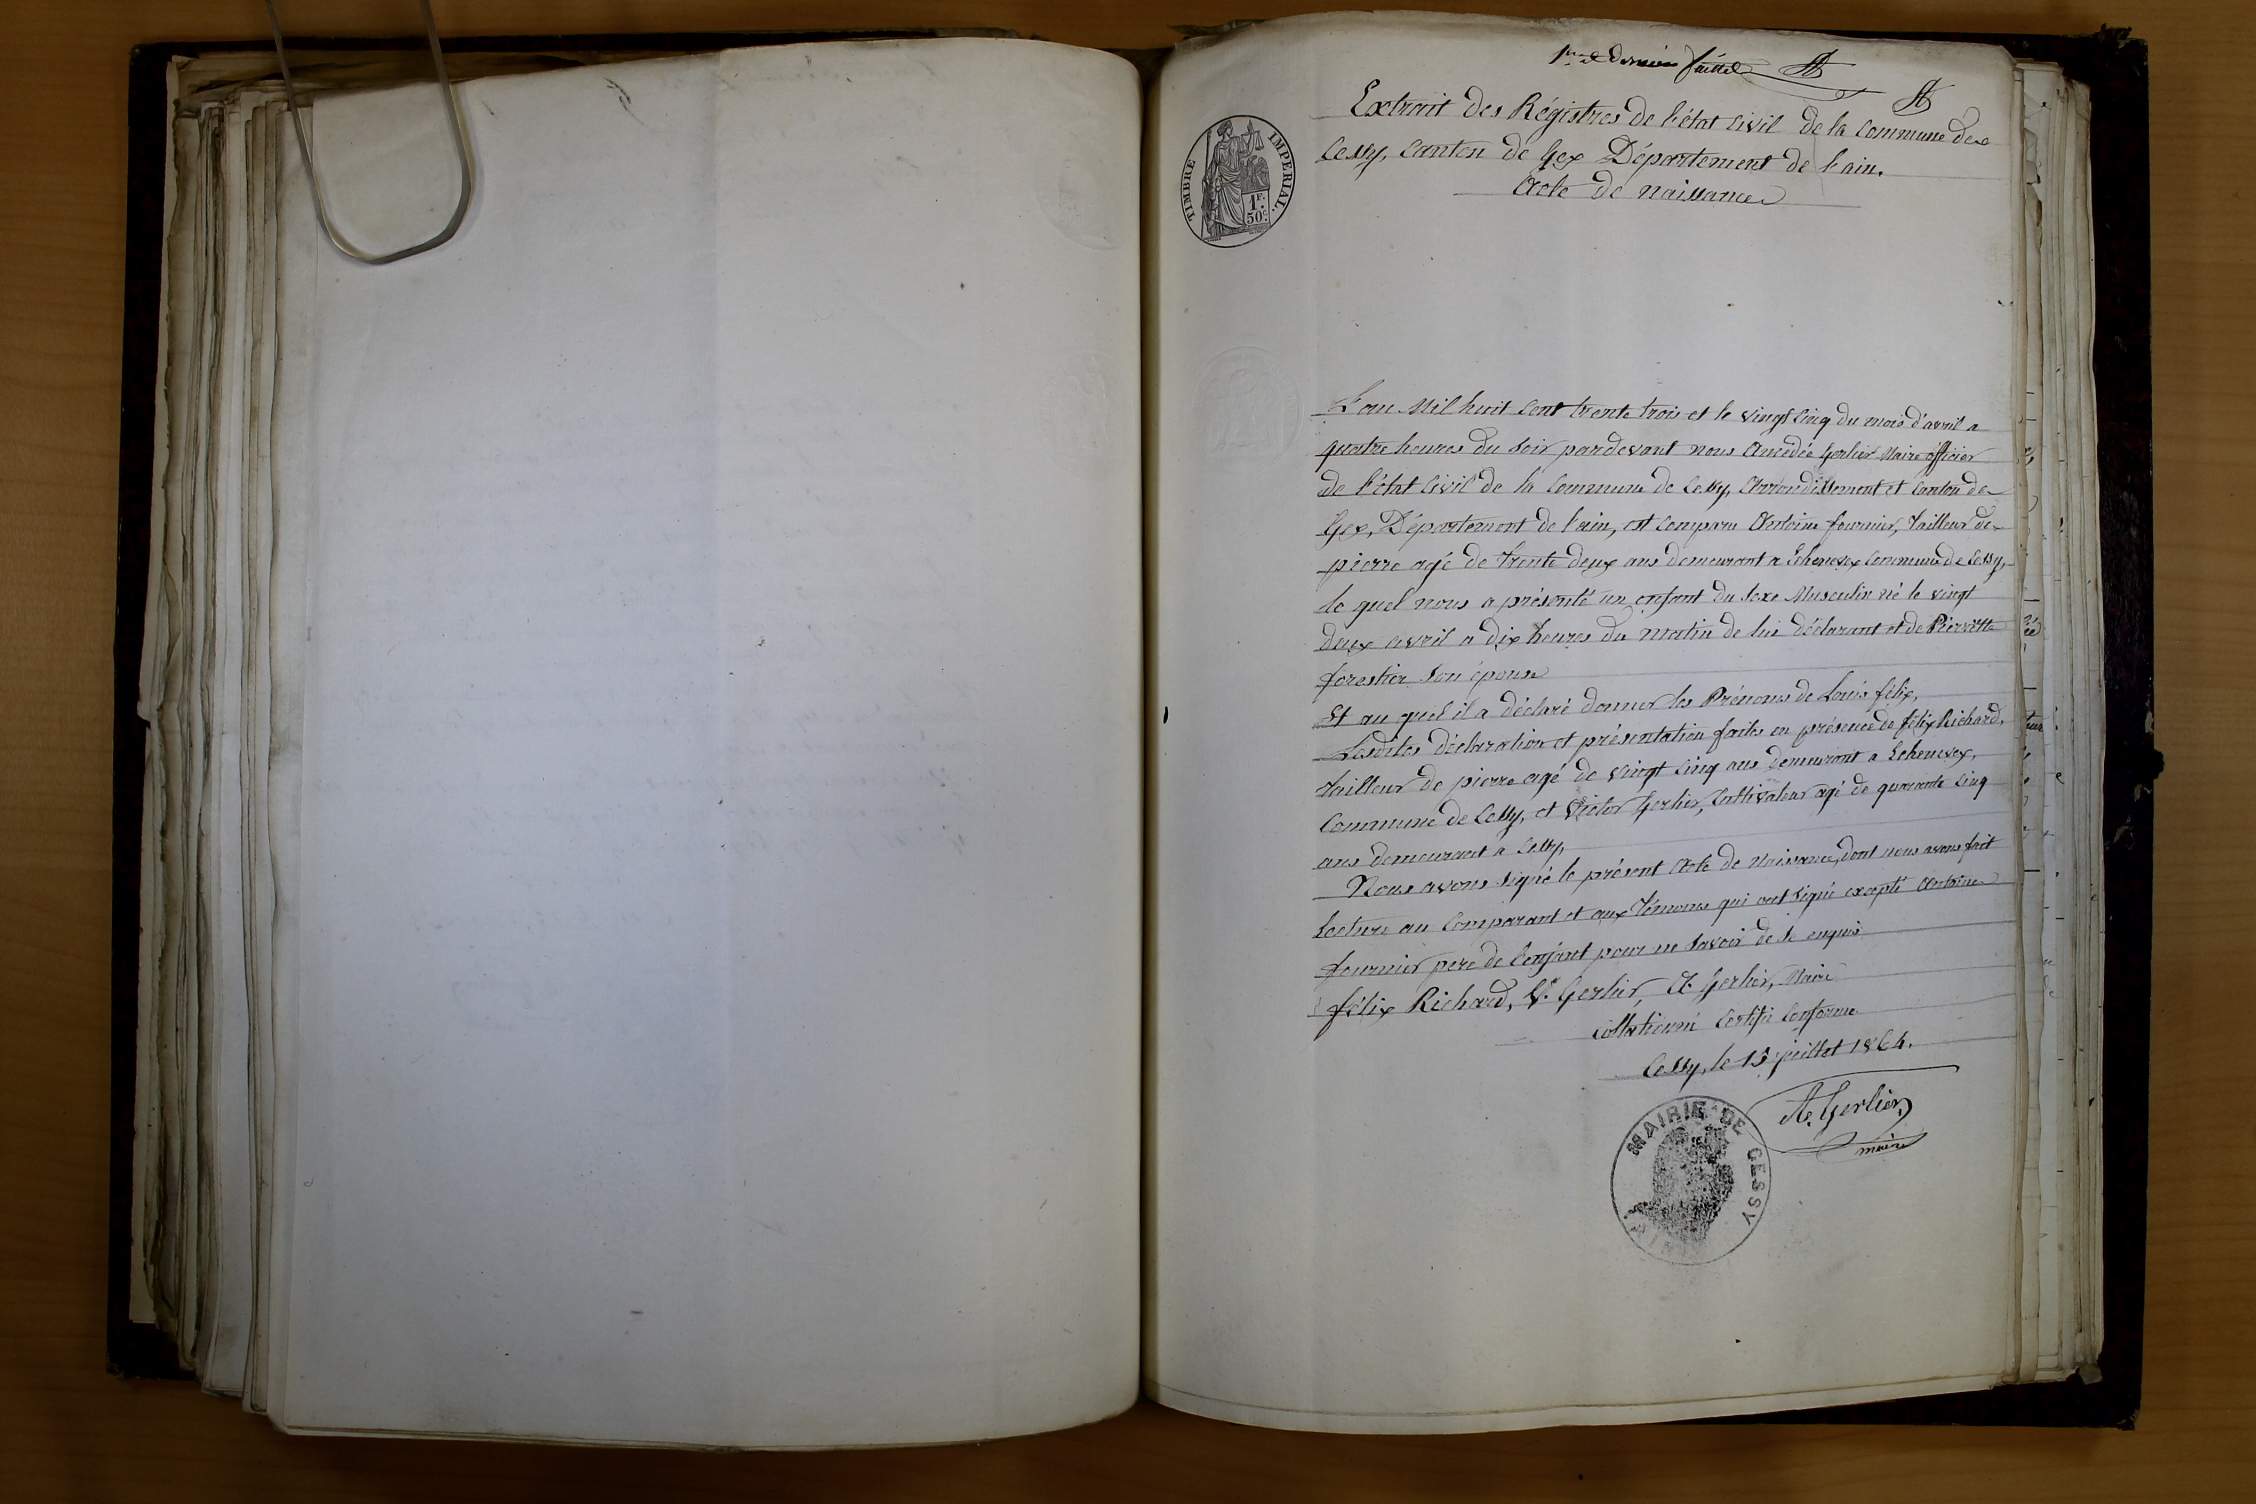 1er et dernier feuillet
Extrait des Régistres de l'état civil de la commune de
Cessy, canton de Gex Département de l'ain.
Acte de naissance
TIMBRE IMPERIAL.
1F.
50C.
L'an Mil huit cent trente trois et le vingt cinq du mois d'avril a
quatre heures du soir pardevant nous Amédée Gerlier Maire officier
de l'état civil de la commune de Cessy, Arrondissement et canton de
Gex, Département de l'ain, est comparu Antoine fournier, Tailleur de
pierre agé de trente deux ans demeurant a Echenevex commune de Cessy,
le quel nous a présenté un enfant du sexe Masculin né le vingt
deux avril a dix heures du matin de lui déclarant et de Pierrette
forestier son épouse
Et au quel il a déclaré donner les Prénoms de Louis félix,
Lesdites déclaration et présentation faites en présence de félix Richard,
Tailleur de pierre agé de vingt cinq ans demeurant a Echenevex,
Commune de Cessy, et Victor Gerlier, Cultivateur agé de quarante cinq
ans demeurant a Cessy,
Nous avons signé le présent Acte de Naissance, dont nous avons fait
Lecture au comparant et aux témoins qui ont signé excepté Antoine
fournier pere de l'enfant pour ne savoir de ce enquis
félix Richard, Vr Gerlier, A. Gerlier, Maire
Collationné Certifié Conforme
Cessy, le 13 juillet 1864.
A. Gerlier
maire
MAIRIE DE CESSY
(AIN)